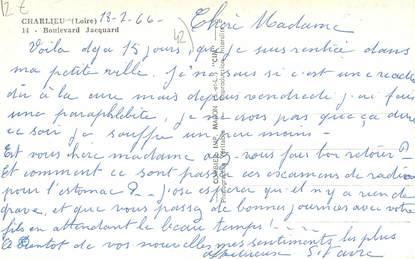 2 €
CHARLIEU (Loire) 18-2-66-
14 - Boulevard Jacquard
42
Chère Madame
Voila déja 15 jours, que je suis rentrée dans
ma petite ville. je ne sais si c'est une reaction
dû à la cure mais depuis vendredi j'ai fait
une paraphlébite, je ne crois pas que ça dure
ce soir je souffre un peu moins-
Et vous chère madame avez vous fait bon retour ?
Et comment ce sont passé ces examens de radio
pour l'estomac ? j'ose espérer qu'il n'y a rien de
grave, et que vous passez de bonnes journées avec votre
fils en attendant le beau temps! - - - -
bientot de vos nouvelles mes sentiments les plus
affectueux